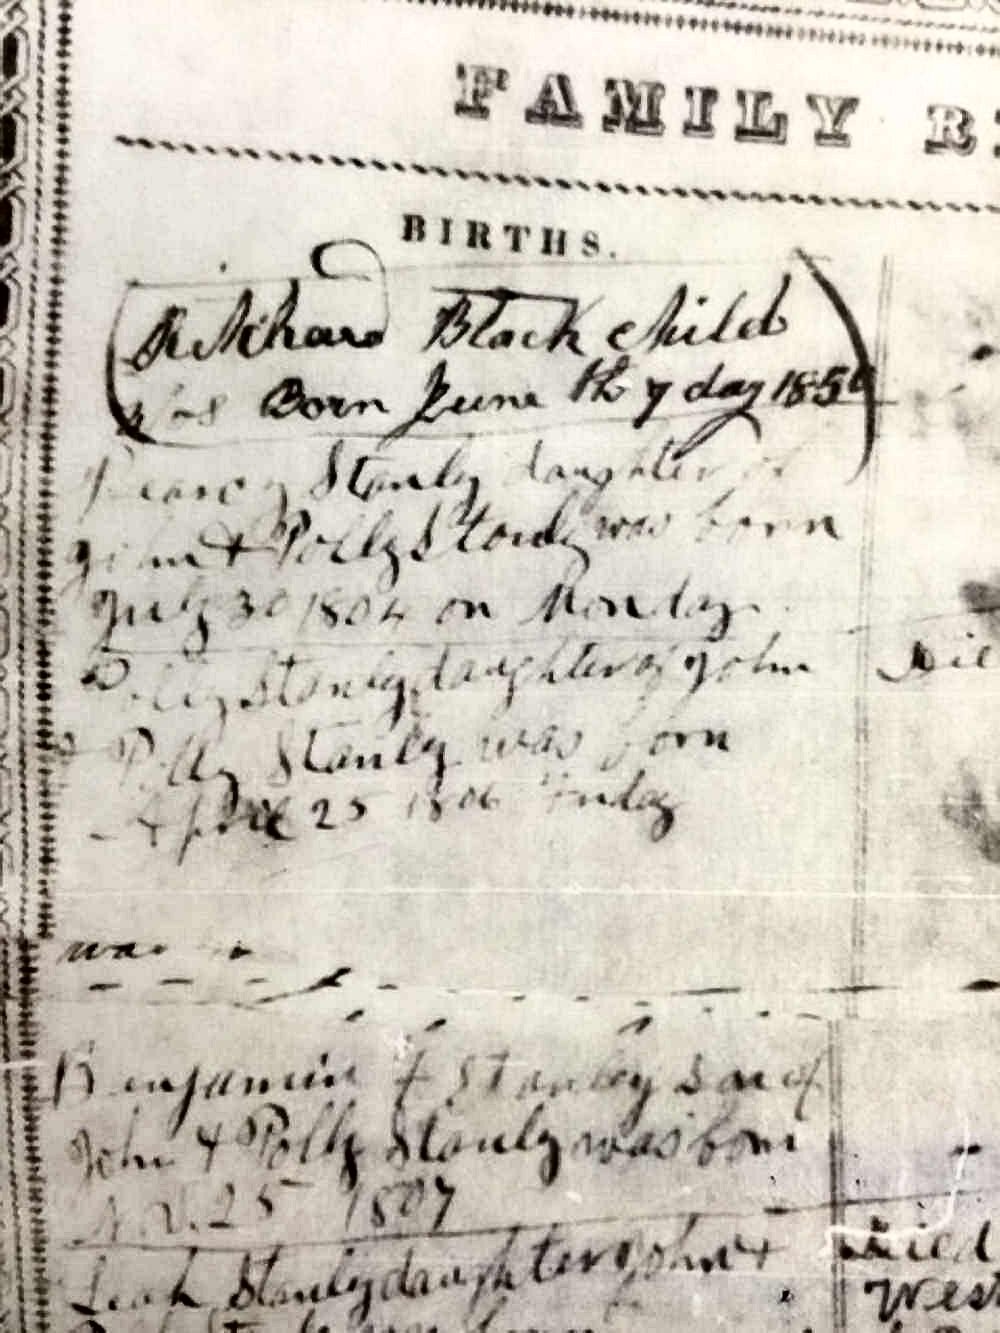 FAMILY
BIRTHS.
Rikhard Black child
was Born June th 7 day 185
Stanly daughter of
John & Polly Stanly was born
July 30 1804 on Monday
Polly Stanly daughter of John
& Polly Stanly was born
April 25 1806
was
Benjamin F Stanley Son of
John & Polly Stanly was born
25 1807
Leah Stanly daughter John &